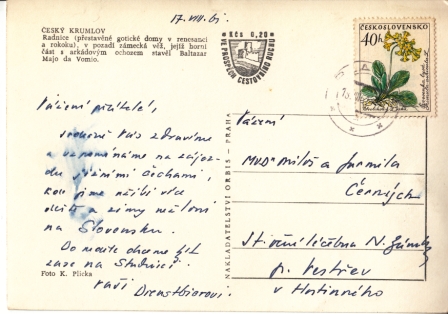 17.VIII.61
ČESKÝ KRUMLOV
Radnice (přestavěné gotické domy v renesanci
a rokoku), v pozadí zámecká věž, jejíž horní
část s arkádovým ochozem stavěl Baltazar
Majo da Vomio.
Kčs 0,20
VE PROSPĚCH CESTOVNÍHO RUCHU
ČESKOSLOVENSKO
40h
Vážení přátelé,
srdečně Vás zdravíme
a vzpomínáme na zájez-
du jižními Čechami,
kde jsme více
a zimy
na Slovensku.
Do neděle chceme být
zase na Studnici.
Vaši
Foto K. Plicka
NAKLADATELSTVÍ ORBIS - PRAHA
Vážení
MUDr Miloš a Jarmila
Černých
N. Zámky
p. Vestřev
u Hostinného